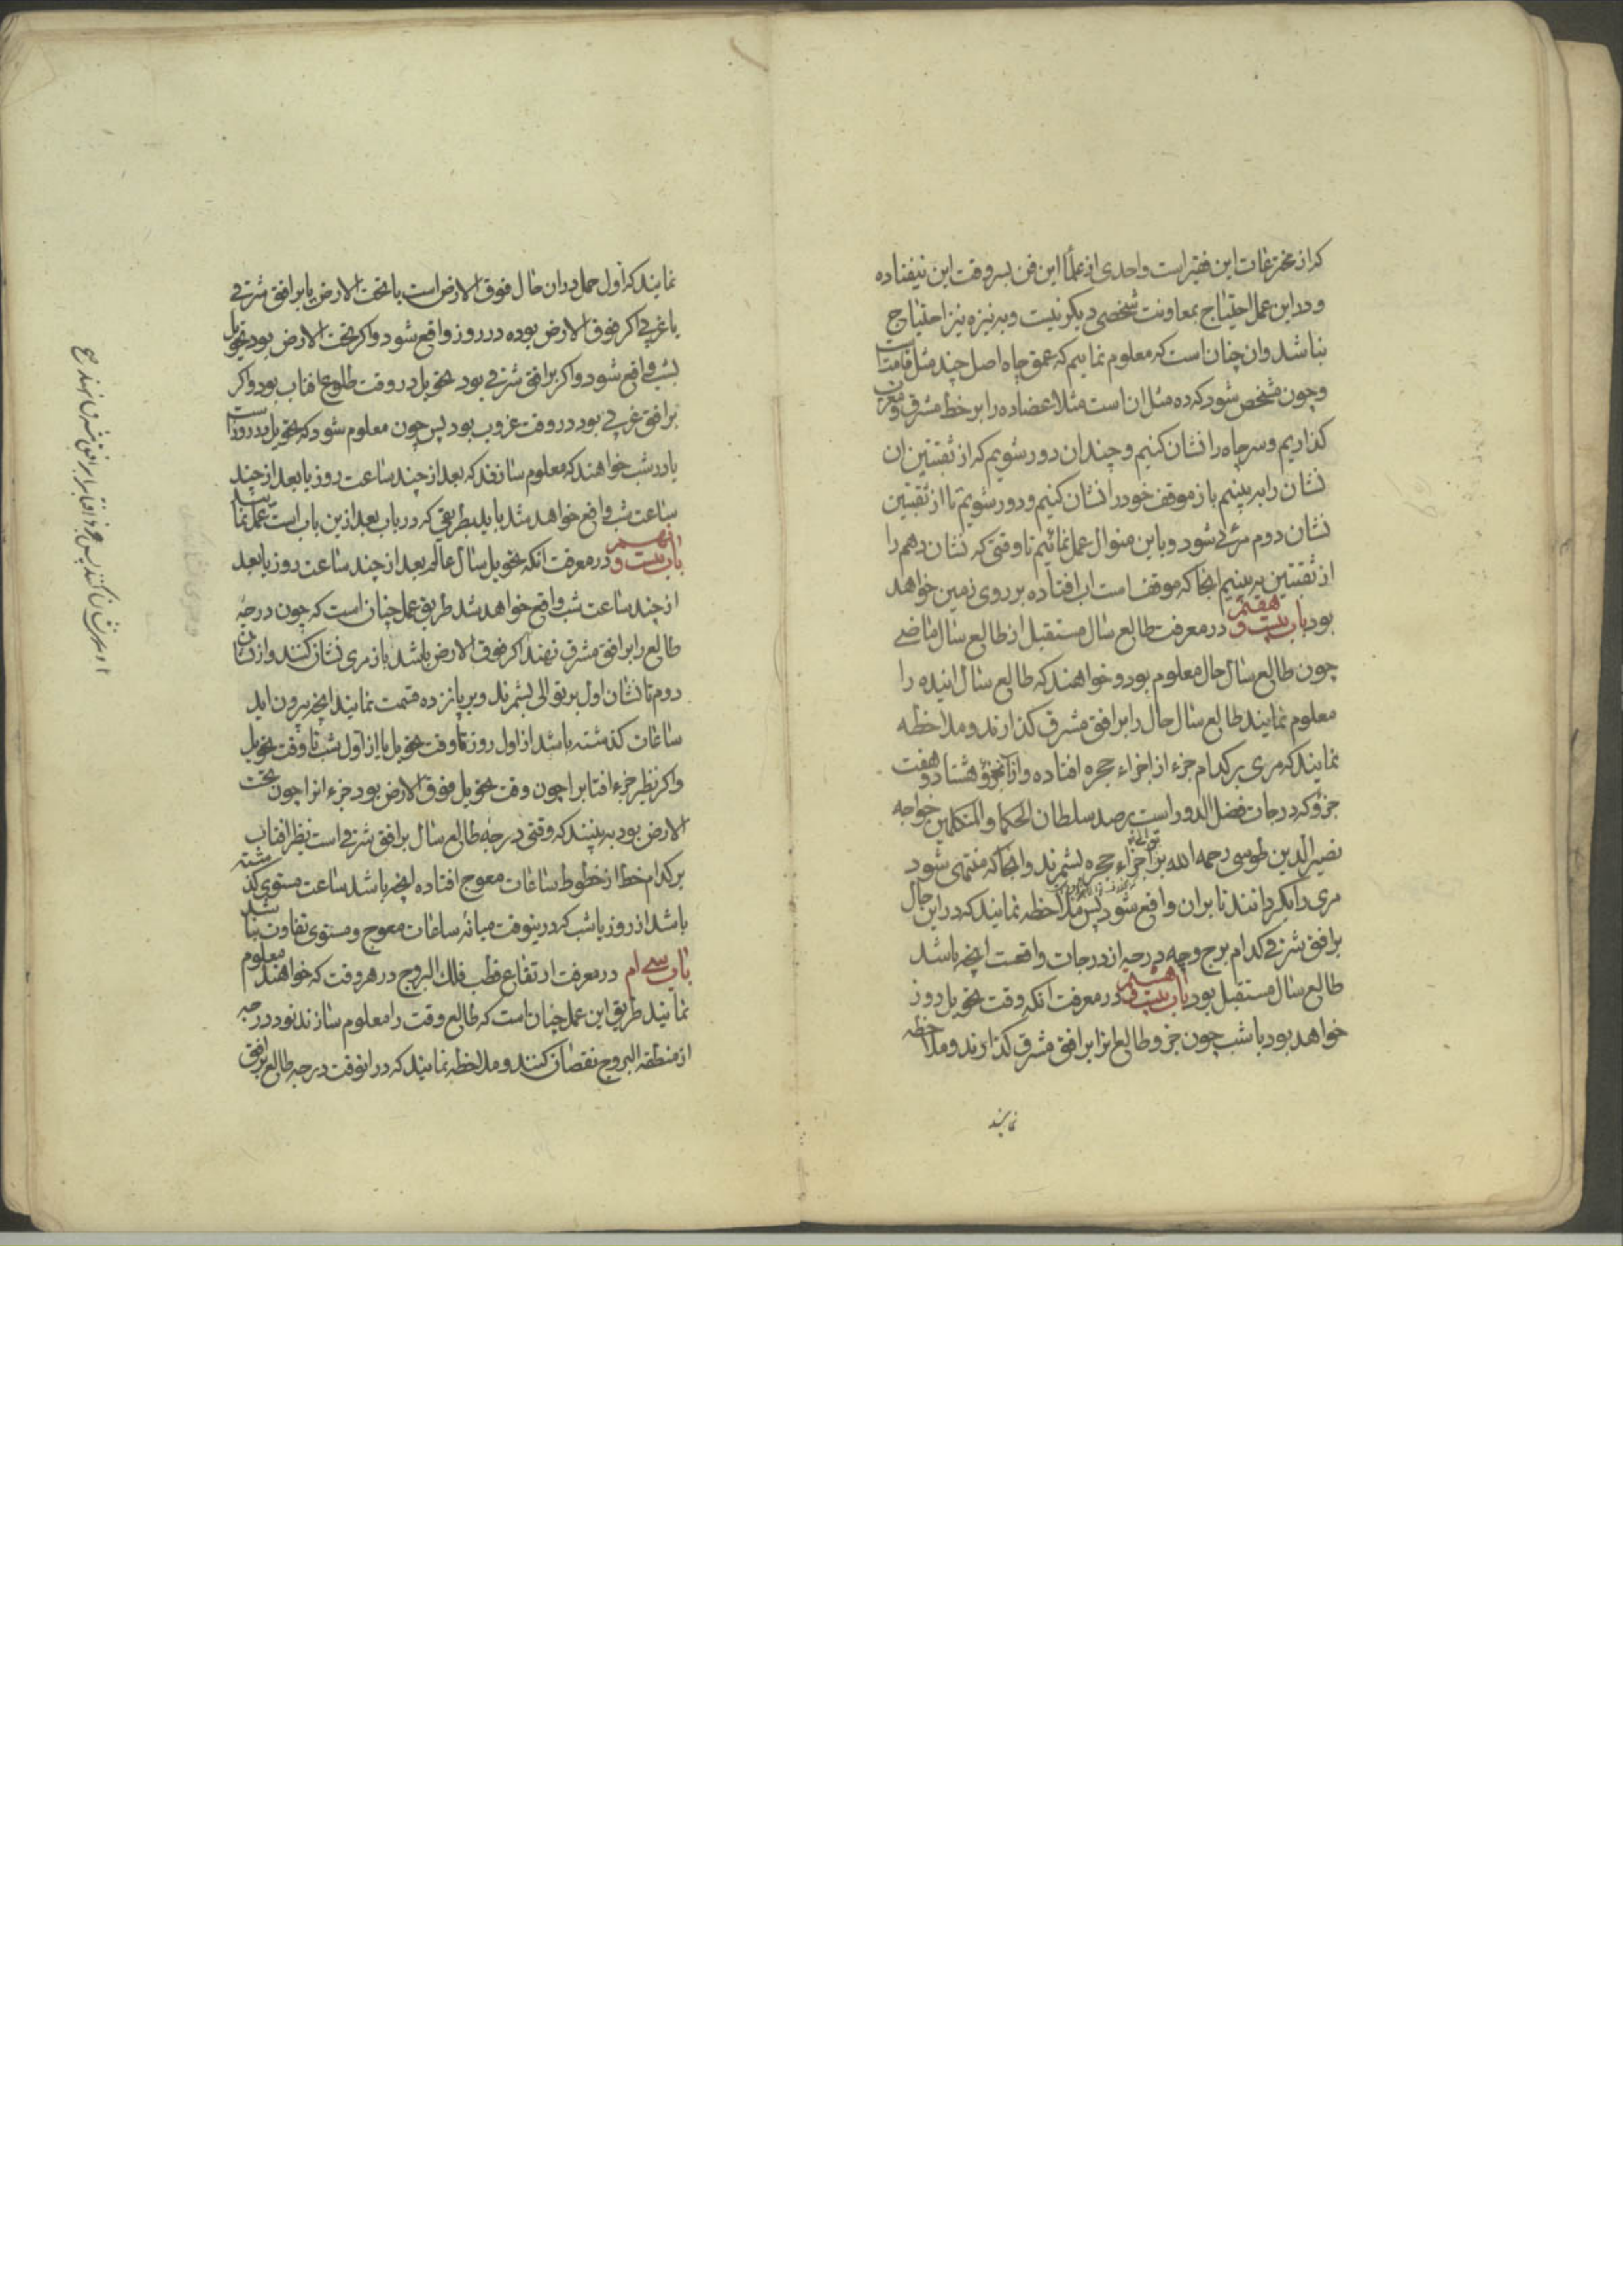 که از مخترعات این فقیر است واحدی از علما این فن بسر وقت این نیفتاده
ودر این عمل احتیاج بمعاونت شخصی دیکر نیست وبه نیزه نیز احتیاج
نباشد وان چنان است که معلوم نماییم که عمق چاه اصل چند مثل قامت است
وچون مشخص شود که ده مثل ان است مثلا عضاده را بر خط مشرق ومغرب
کذاریم وسر چاه را نشان کنیم وچندان دور شویم که از ثقبتین ان
نشان را به بینیم باز موقف خود را نشان کنیم ودور شویم تا از ثقبتین
نشان دوم مرئی شود وباین منوال عمل نمائیم تا وقتی که نشان دهم را
از ثقبتین به بینیم انجا که موقف است اب افتاده بر روی زمین خواهد
بود باب بیست و هفتم در معرفت طالع سال مستقبل از طالع سال ماضی
چون طالع سال حال معلوم بود وخواهند که طالع سال اینده را
معلوم نمایند طالع سال حال را بر افق مشرق کذارند وملاحظه
نمایند که مری بر کدام جزء از اجزاء حجره افتاده واز آنجزؤ هشتاد و هفت
جزؤ که درجات فضل الدور است برصد سلطان الحکما والمتکلمین خواجه
نصیر الدین طوسی رحمه الله بر اجزاء حجره بتوالی بشمرند وانجا که منتهی شود
مری را بکردانند تا بران واقع شود پس ملاحظه نمایند که در این حال
بر افق شرقی کدام برج وچه درجه از درجات واقعست انچه باشد
طالع سال مستقبل بود باب بیست و هشتم در معرفت انکه وقت تحویل روز
خواهد بود یا شب چون جزو طالع انرا بر افق مشرق کذارند وملاحظه
نمایند
نمایند که اول حمل دران حال فوق الارض است یا تحت الارض یا بر افق شرقی
یا غربی اکر فوق الارض بوده در روز واقع شود واکر تحت الارض بود تحویل
بشب واقع شود واکر بر افق شرقی بود تحویل در وقت طلوع افتاب بود واکر
بر افق غربی بود در وقت غروب بود پس چون معلوم شود که تحویل در روز است
یا در شب خواهند که معلوم سازند که بعد از چند ساعت روز یا بعد از چند
ساعت شب واقع خواهد شد باید بطریقی که در باب بعد از این باب است عمل نمایند
باب بیست و نهم در معرفت انکه تحویل سال عالم بعد از چند ساعت روز یا بعد
از چند ساعت شب واقع خواهد شد طریق عمل چنان است که چون درجه
طالع را بر افق مشرق نهند اکر فوق الارض باشد باز مری نشان کنند واز نشان
دوم تا نشان اول بر توالی بشمرند وبر پانزده قسمت نمایند انچه بیرون اید
ساعات کذشته باشد از اول روز تا وقت تحویل یا از اول شب تا وقت تحویل
واکر نظیر جزء افتاب را چون وقت تحویل فوق الارض بود جزء انرا چون تحت
الارض بود به بینند که وقتی درجه طالع سال بر افق شرقی است نظیر افتاب
بر کدام خط از خطوط ساعات معوج افتاده انچه باشد ساعت مستوی کذشته
باشد از روز یا شب که درینوقت میانه ساعات معوج ومستوی تفاوت نباشد
باب سی ام در معرفت ارتفاع قطب فلک البروج در هر وقت که خواهند معلوم
نمایند طریق این عمل چنان است که طالع وقت را معلوم سازند نود درجه
از منطقه البروج نقصان کنند وملاحظه نمایند که در انوقت درجه طالع بر افق